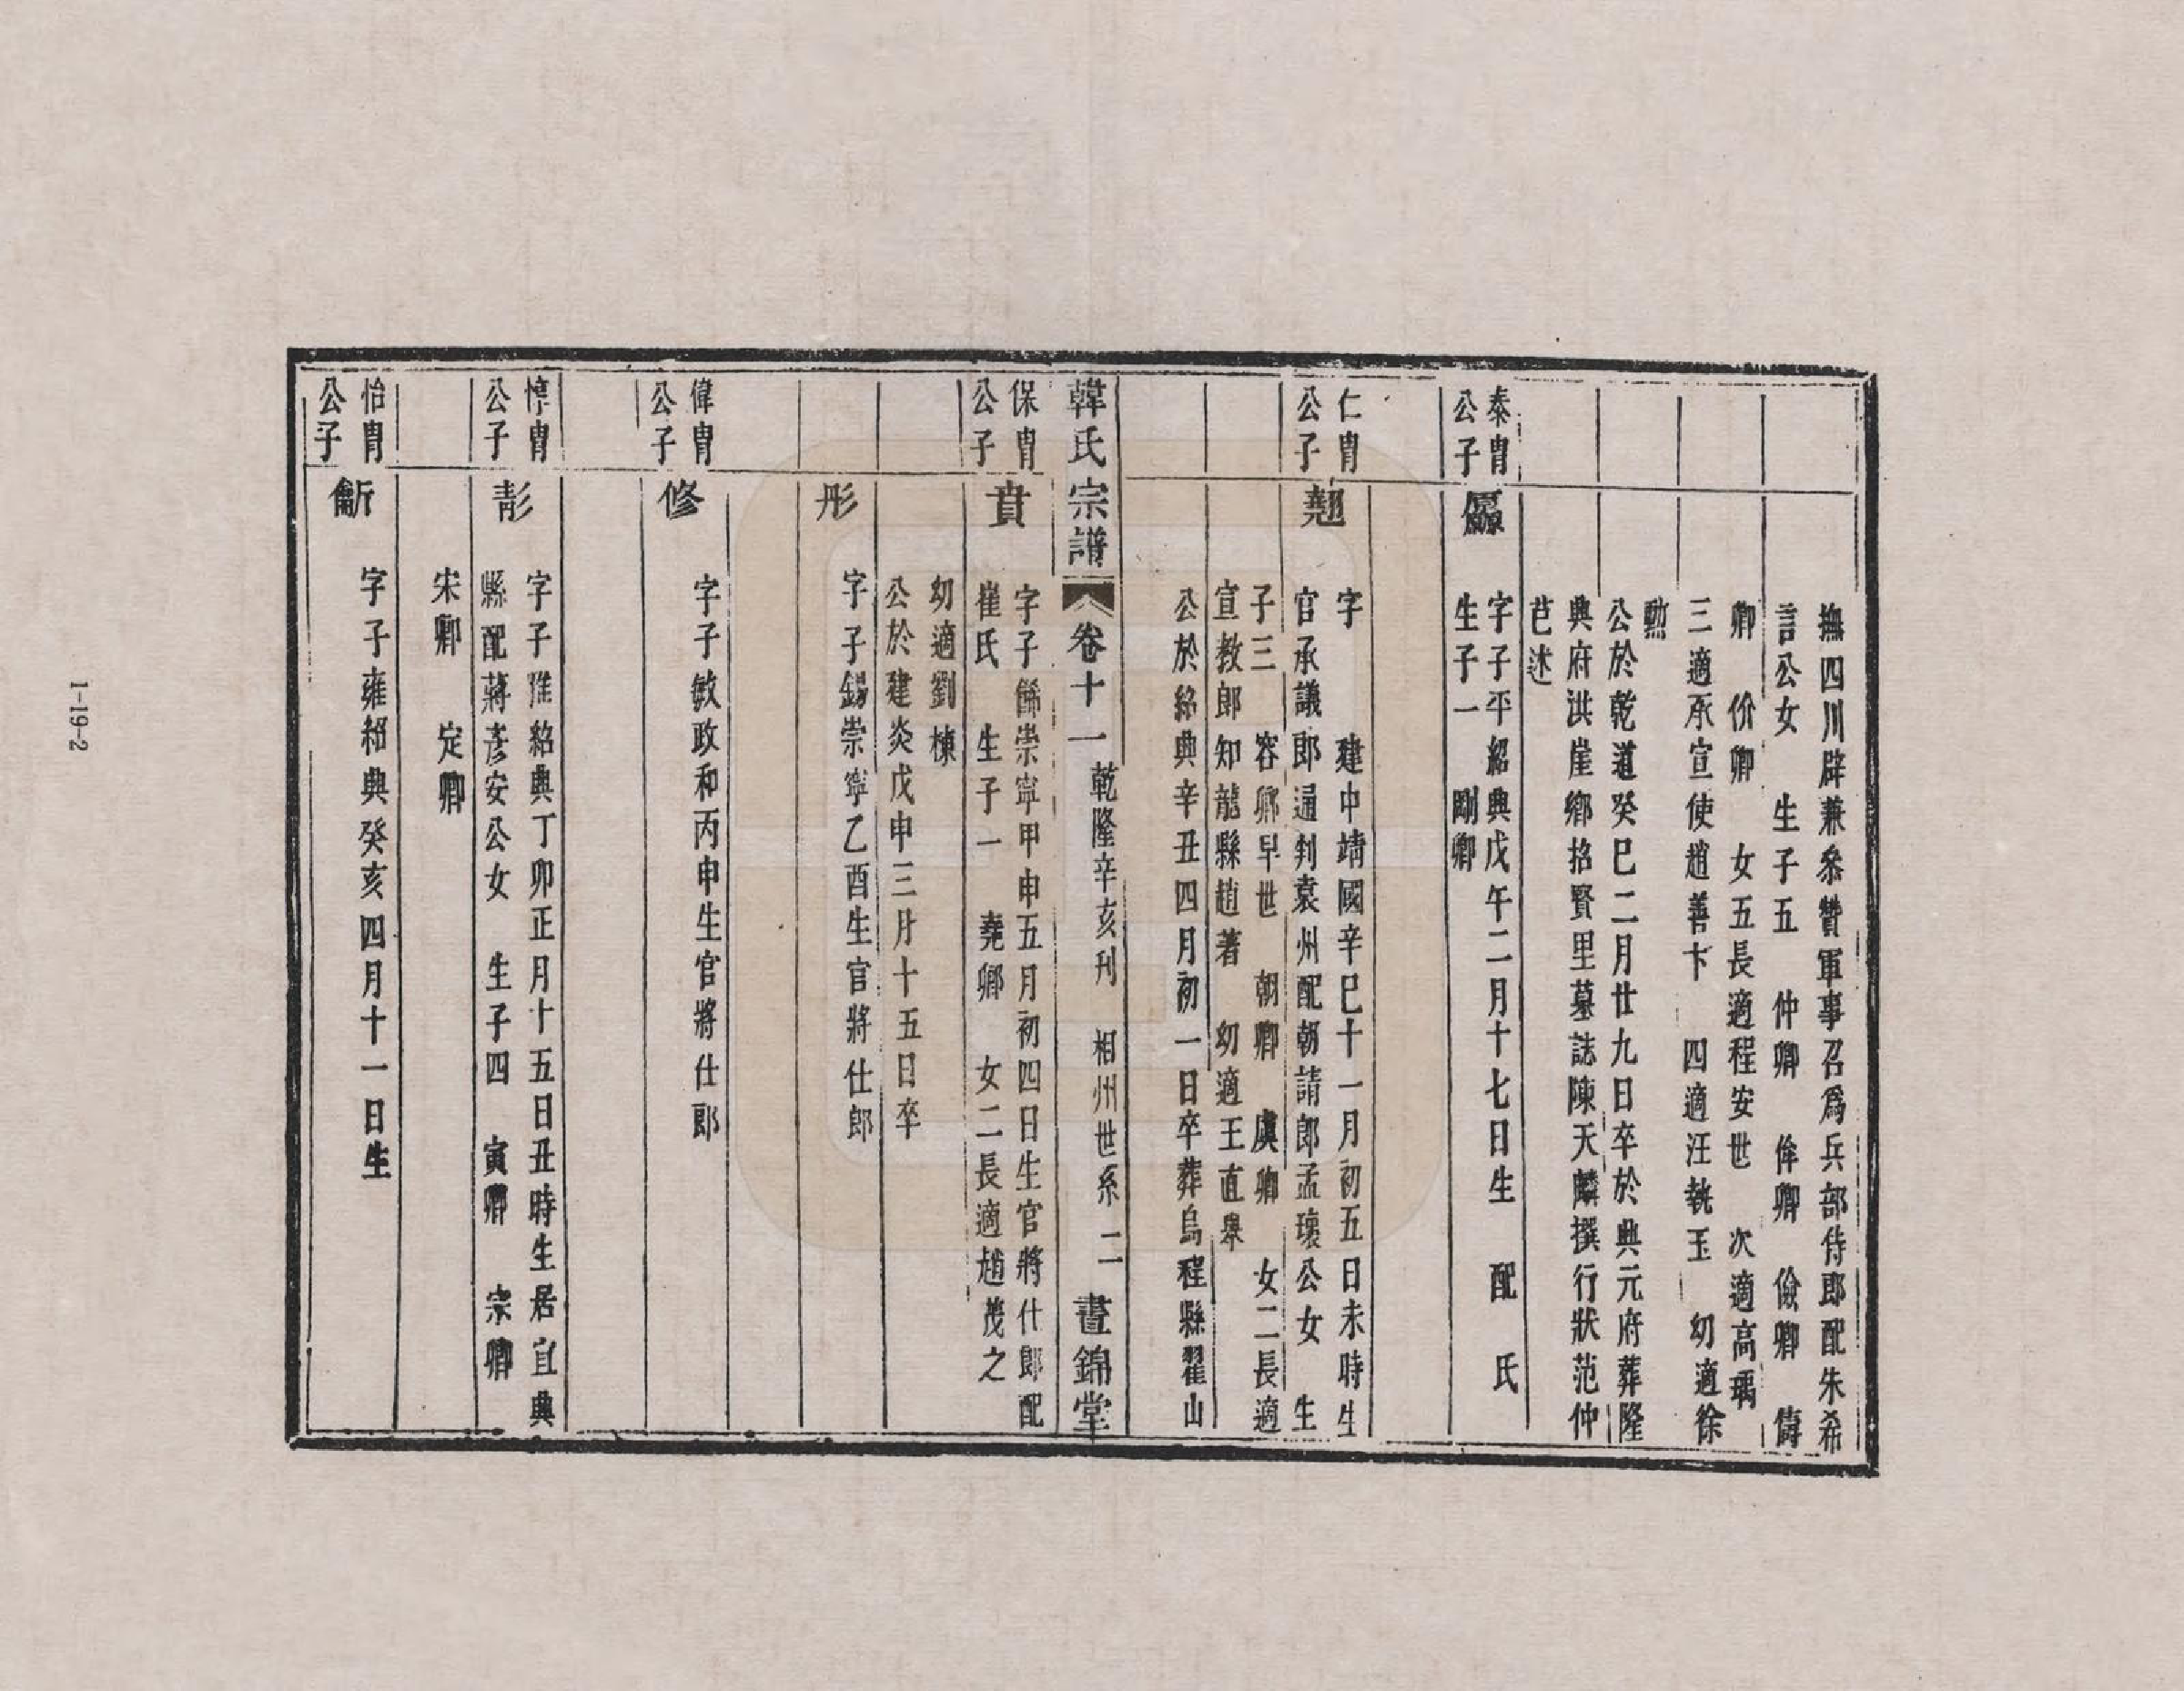 撫四川辟兼叅贊軍事召爲兵部侍郎配朱希
言公女 生子五 仲卿 侔卿 儉卿 儔
卿 价卿 女五長適程安世 次適高瑀
三適承宣使趙善卞 四適汪執玉 幼適徐
勲
公於乾道癸巳二月廿九日卒於興元府葬隆
興府洪崖鄉招賢里墓誌陳天麟撰行狀范仲
芑述
泰胄
公子
字子平紹興戊午二月十七日生 配 氏
生子一 剛卿
仁胄
公子
翹
字 建中靖國辛巳十一月初五日未時生
官承議郎通判袁州配朝請郎孟瓌公女 生
子三 容卿早世 朝卿 虞卿 女二長適
宣教郎知龍縣趙著 幼適王直舉
公於紹興辛丑四月初一日卒葬烏程縣翟山
韓氏宗譜 卷十一 乾隆辛亥刊 相州世系 二 晝錦堂
保胄
公子
賁
字子餙崇寧甲申五月初四日生官將仕郎配
崔氏 生子一 堯卿 女二長適趙茂之
幼適劉棟
公於建炎戊申三月十五日卒
彤
字子錫崇寧乙酉生官將仕郎
偉胄
公子
修
字子敏政和丙申生官將仕郎
惇胄
公子
彰
字子惟紹興丁卯正月十五日丑時生居宜興
縣配蔣彥安公女 生子四 寅卿 宗卿
宋卿 定卿
怡胄
公子
斸
字子雍紹興癸亥四月十一日生
1-19-2